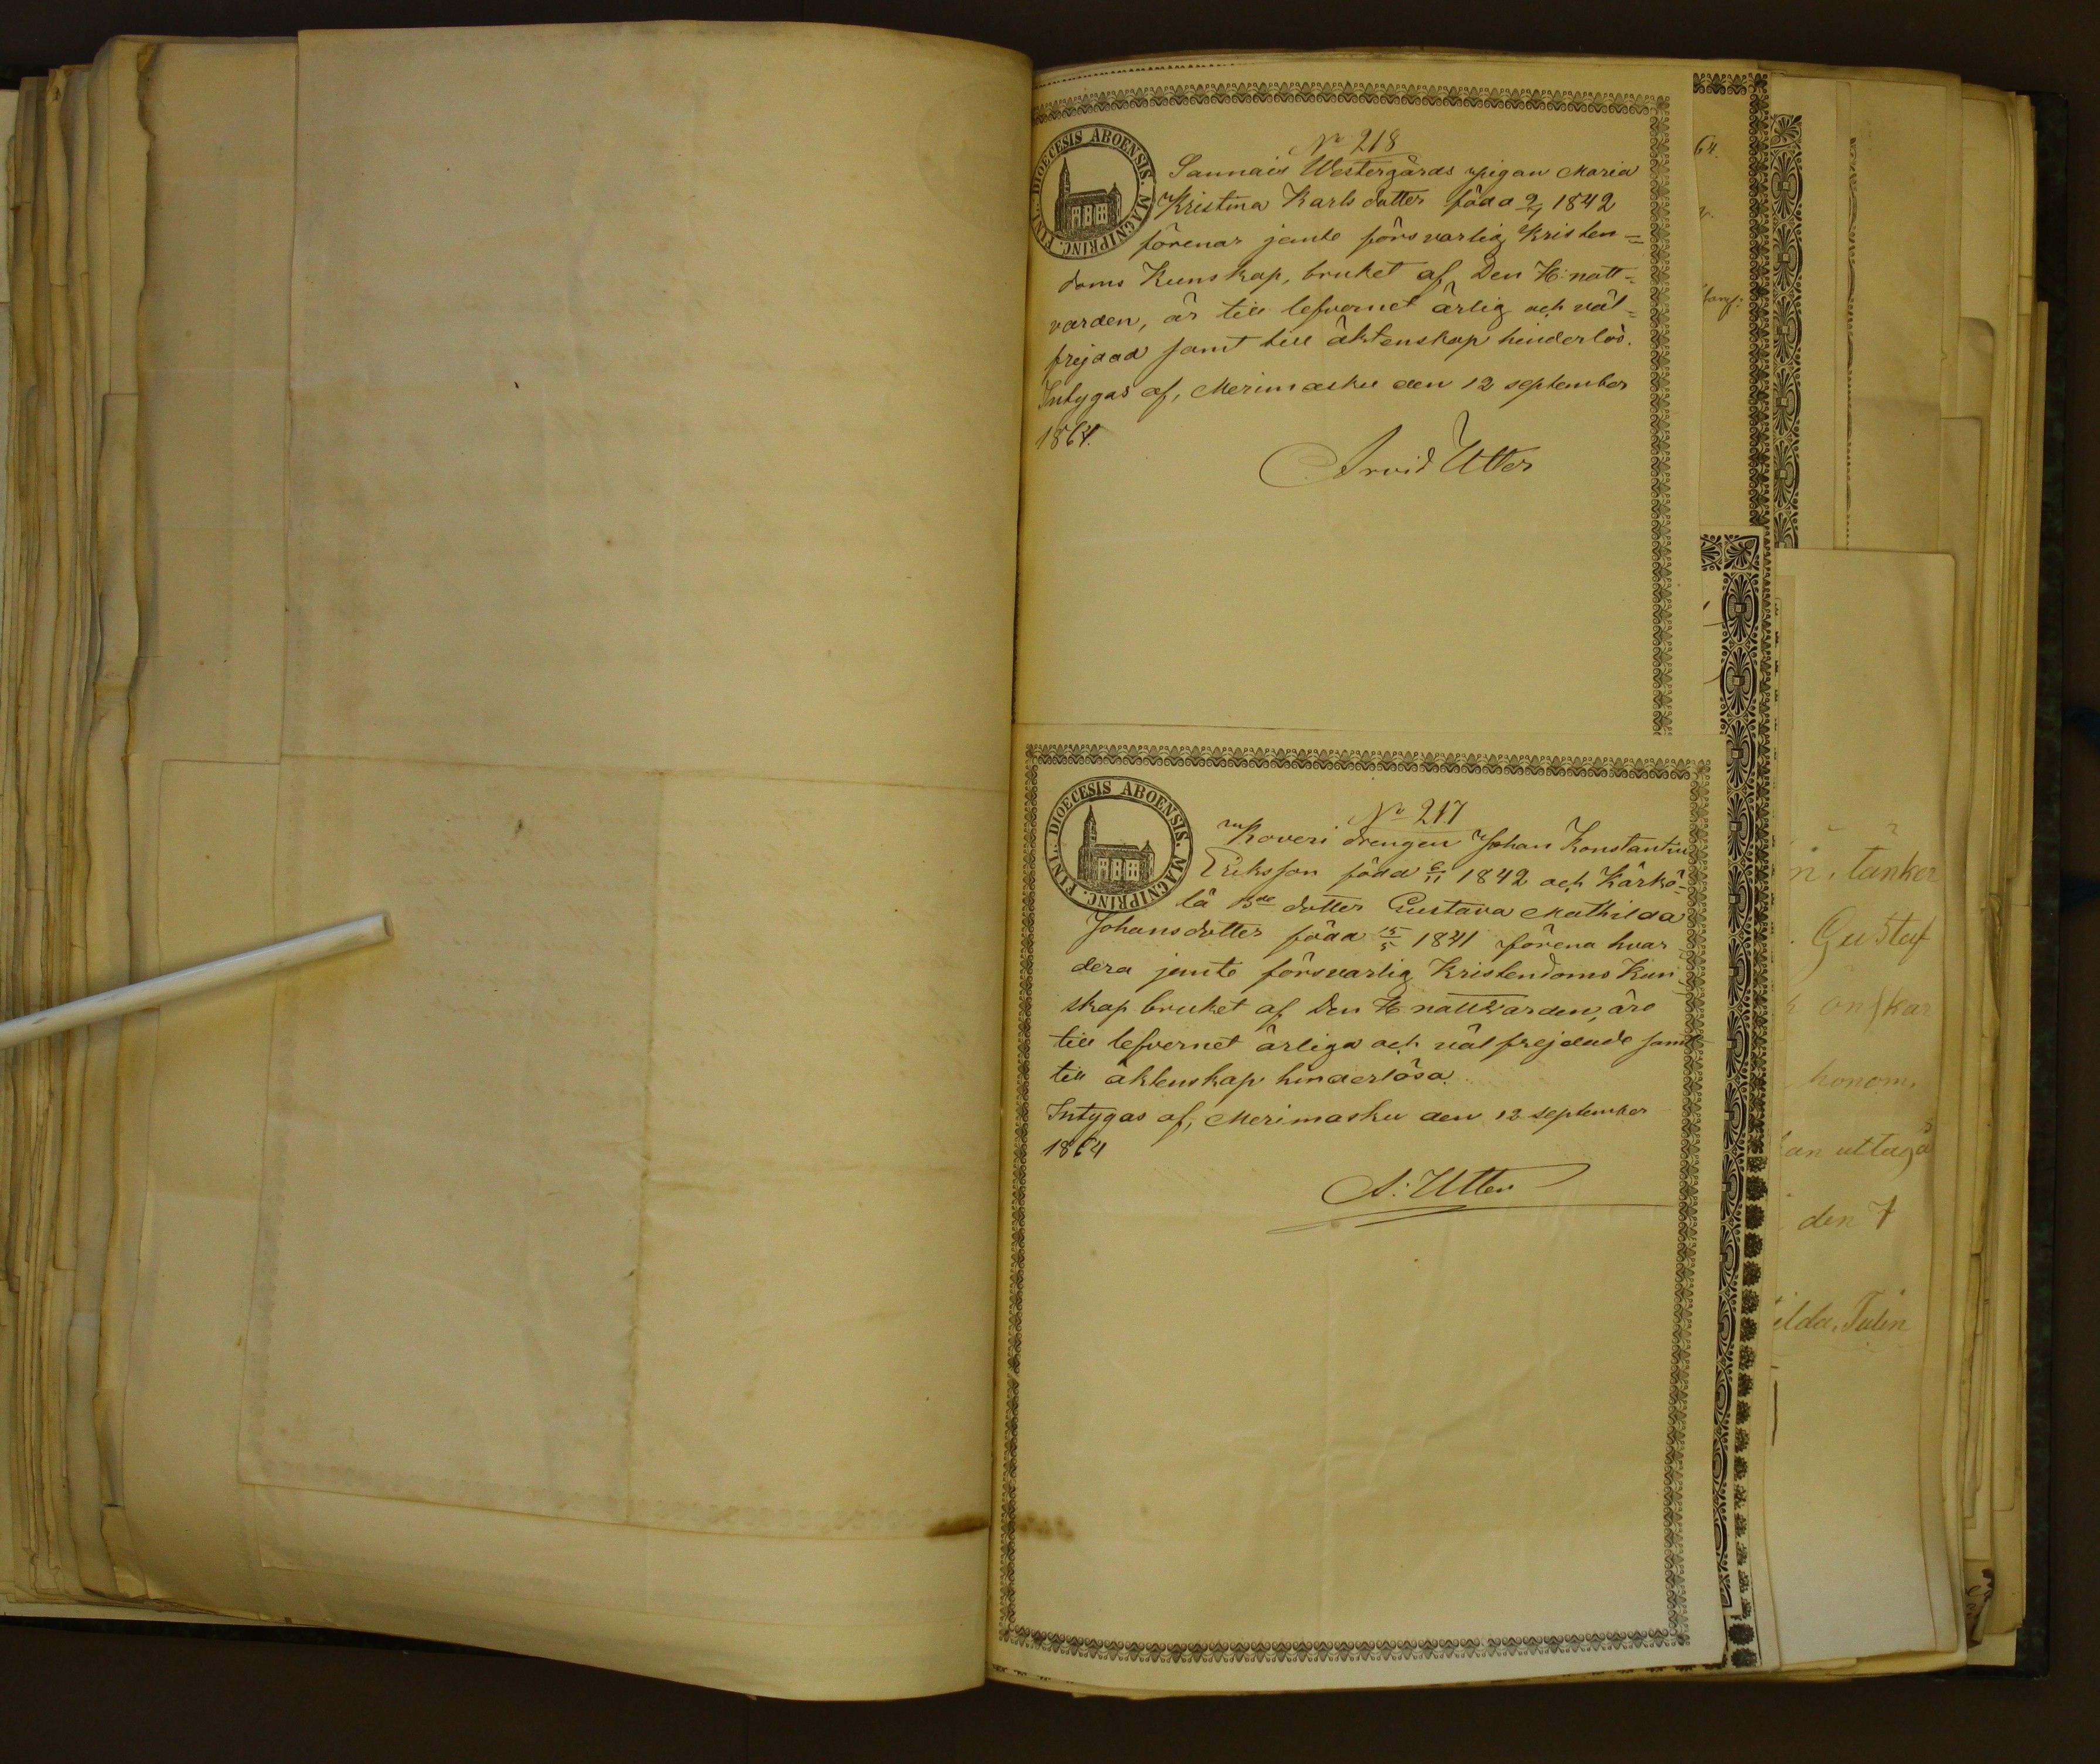 FINL. DIOECESIS ABOENSIS. MAGNIPRINC.
No 218
Sannais Westergårds pigan Maria
Kristina Karlsdotter född 2/9 1842
förenar jemte försvarlig Kristen=
doms Kunskap, bruket af Den H: natt=
varden, är till lefvernet ärlig och väl=
frejdad samt till äktenskap hinderlös.
Intygas af, Merimasku den 12 september
1864.
Arvid Utter
FINL. DIOECESIS ABOENSIS. MAGNIPRINC.
No 217
Koveri drengen Johan Konstantin
Eriksson född 6/11 1842 och Kärkö=
lä Bde dotter Gustava Mathilda
Johansdotter född 15/5 1841 förena hvar
dera jemte försvarlig Kristendoms Kun
skap bruket af Den H nattvarden, äro
till lefvernet ärliga och väl frejdade samt
till äktenskap hinderlösa.
Intygas af, Merimasku den 12 september
1864
A: Utter
64.
tänker
Gustaf
onskar
honom.
an uttaga
den 7
ilda. Tulin